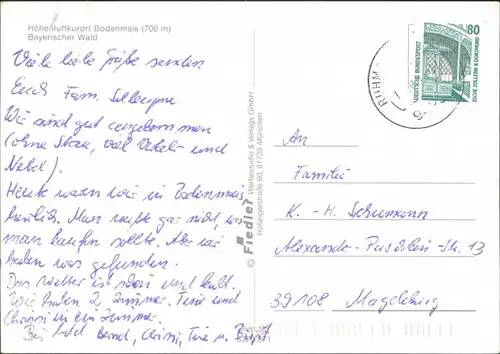 Höhenluftkurort Bodenmais (700 m)
Bayerischer Wald
Viele liebe Grüße senden
Euch Fam.
Wir sind gut angekommen
(ohne Stau, viel Nebel und
Nebel).
Heute waren wir in Bodenmais
herrlich. Man wußte gar nicht, wo
man kaufen sollte. Aber wir
haben was gefunden.
Das Wetter ist schön und kalt.
Wir haben 2 Zimmer. Tine und
Chrissi in ein Zimmer.
Bis bald Bernd, Chrissi, Tine u.
© Fiedler Werbestudio & Verlags GmbH
80
DEUTSCHE BUNDESPOST
ZECHE ZOLLERN II · DORTMUND
An
Familie
K.-H. Schumann
Alexander-Puschkin-Str. 13
39108 Magdeburg